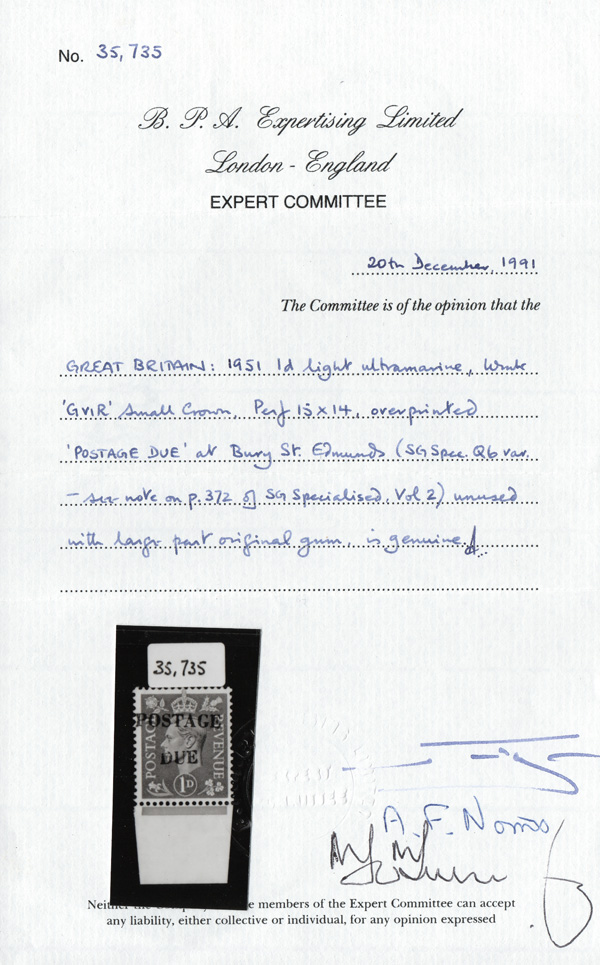 No. 35,735
B. P. A. Expertising Limited
London - England
EXPERT COMMITTEE
20th December, 1991
The Committee is of the opinion that the
GREAT BRITAIN: 1951 1d light ultramarine, Wmk
'GVIR' Small Crown, Perf 15x14, overprinted
'POSTAGE DUE' at Bury St. Edmunds (SG Spec. Q6 var.
- see note on p.372 of SG Specialised, Vol 2) unused
with large part original gum, is genuine.
35,735
POSTAGE
DUE
POSTAGE
REVENUE
1D
A. F. Norris
Neither the e members of the Expert Committee can accept
any liability, either collective or individual, for any opinion expressed